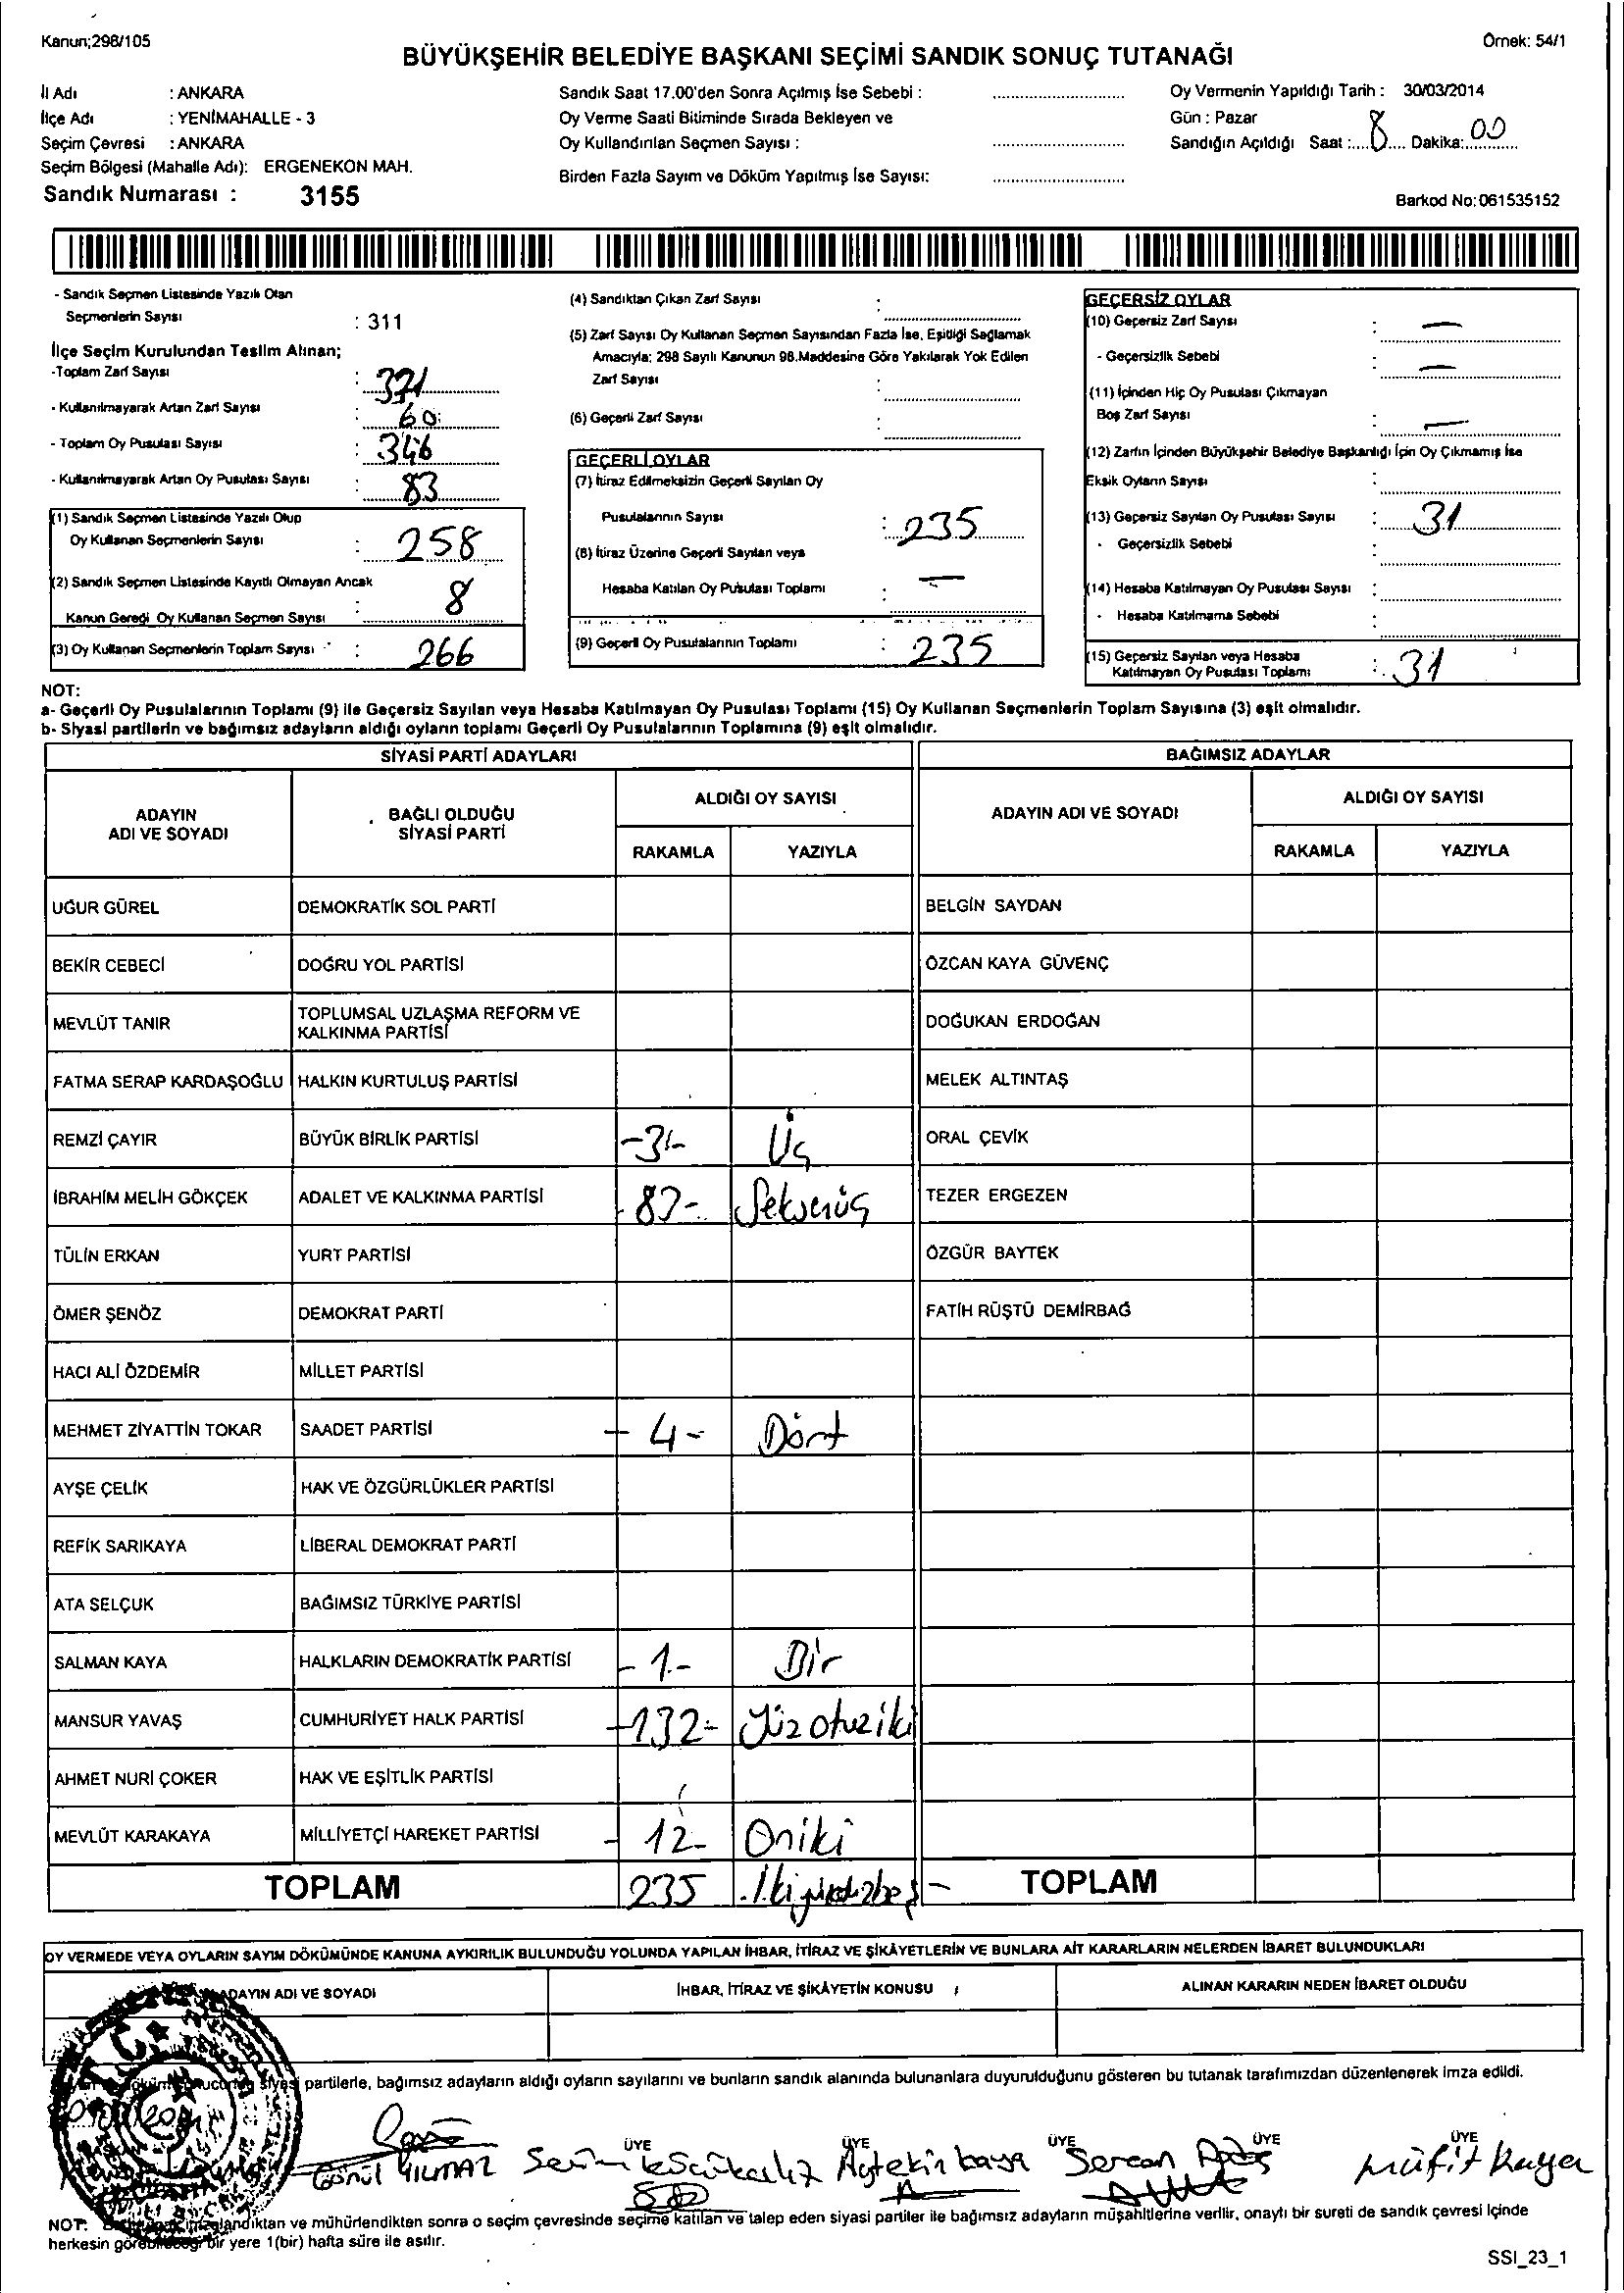 Kanun;298/105
Örnek: 54/1
BÜYÜKŞEHİR BELEDİYE BAŞKANI SEÇİMİ SANDIK SONUÇ TUTANAĞI
İl Adı : ANKARA
İlçe Adı : YENİMAHALLE - 3
Seçim Çevresi : ANKARA
Seçim Bölgesi (Mahalle Adı): ERGENEKON MAH.
Sandık Numarası : 3155
Sandık Saat 17.00'den Sonra Açılmış İse Sebebi :
Oy Verme Saati Bitiminde Sırada Bekleyen ve
Oy Kullandırılan Seçmen Sayısı :
Birden Fazla Sayım ve Döküm Yapılmış İse Sayısı:
Oy Vermenin Yapıldığı Tarih : 30/03/2014
Gün : Pazar
Sandığın Açıldığı Saat :....8.... Dakika:...00...
Barkod No:061535152
- Sandık Seçmen Listesinde Yazılı Olan
Seçmenlerin Sayısı : 311
İlçe Seçim Kurulundan Teslim Alınan;
-Toplam Zarf Sayısı :
- Kullanılmayarak Artan Zarf Sayısı : 60
- Toplam Oy Pusulası Sayısı : 346
- Kullanılmayarak Artan Oy Pusulası Sayısı : 83
(1) Sandık Seçmen Listesinde Yazılı Olup
Oy Kullanan Seçmenlerin Sayısı : 258
(2) Sandık Seçmen Listesinde Kayıtlı Olmayan Ancak
Kanun Gereği Oy Kullanan Seçmen Sayısı : 8
(3) Oy Kullanan Seçmenlerin Toplam Sayısı : 266
(4) Sandıktan Çıkan Zarf Sayısı :
(5) Zarf Sayısı Oy Kullanan Seçmen Sayısından Fazla İse, Eşitliği Sağlamak
Amacıyla; 298 Sayılı Kanunun 98.Maddesine Göre Yakılarak Yok Edilen
Zarf Sayısı :
(6) Geçerli Zarf Sayısı :
GEÇERLİ OYLAR
(7) İtiraz Edilmeksizin Geçerli Sayılan Oy
Pusulalarının Sayısı : 235
(8) İtiraz Üzerine Geçerli Sayılan veya
Hesaba Katılan Oy Pusulası Toplamı : —
(9) Geçerli Oy Pusulalarının Toplamı : 235
GEÇERSİZ OYLAR
(10) Geçersiz Zarf Sayısı : —
- Geçersizlik Sebebi : —
(11) İçinden Hiç Oy Pusulası Çıkmayan
Boş Zarf Sayısı : —
(12) Zarfın İçinden Büyükşehir Belediye Başkanlığı İçin Oy Çıkmamış İse
Eksik Oyların Sayısı :
(13) Geçersiz Sayılan Oy Pusulası Sayısı : 31
- Geçersizlik Sebebi :
(14) Hesaba Katılmayan Oy Pusulası Sayısı :
- Hesaba Katılmama Sebebi :
(15) Geçersiz Sayılan veya Hesaba
Katılmayan Oy Pusulası Toplamı : 31
NOT:
a- Geçerli Oy Pusulalarının Toplamı (9) ile Geçersiz Sayılan veya Hesaba Katılmayan Oy Pusulası Toplamı (15) Oy Kullanan Seçmenlerin Toplam Sayısına (3) eşit olmalıdır.
b- Siyasi partilerin ve bağımsız adayların aldığı oyların toplamı Geçerli Oy Pusulalarının Toplamına (9) eşit olmalıdır.
SİYASİ PARTİ ADAYLARI
BAĞIMSIZ ADAYLAR
ADAYIN
ADI VE SOYADI
BAĞLI OLDUĞU
SİYASİ PARTİ
ALDIĞI OY SAYISI
ADAYIN ADI VE SOYADI
ALDIĞI OY SAYISI
RAKAMLA YAZIYLA
RAKAMLA YAZIYLA
UĞUR GÜREL DEMOKRATİK SOL PARTİ BELGİN SAYDAN
BEKİR CEBECİ DOĞRU YOL PARTİSİ ÖZCAN KAYA GÜVENÇ
MEVLÜT TANIR TOPLUMSAL UZLAŞMA REFORM VE
KALKINMA PARTİSİ DOĞUKAN ERDOĞAN
FATMA SERAP KARDAŞOĞLU HALKIN KURTULUŞ PARTİSİ MELEK ALTINTAŞ
REMZİ ÇAYIR BÜYÜK BİRLİK PARTİSİ -3- Üç ORAL ÇEVİK
İBRAHİM MELİH GÖKÇEK ADALET VE KALKINMA PARTİSİ -83- Seksenüç TEZER ERGEZEN
TÜLİN ERKAN YURT PARTİSİ ÖZGÜR BAYTEK
ÖMER ŞENÖZ DEMOKRAT PARTİ FATİH RÜŞTÜ DEMİRBAĞ
HACI ALİ ÖZDEMİR MİLLET PARTİSİ
MEHMET ZİYATTİN TOKAR SAADET PARTİSİ - 4 - Dört
AYŞE ÇELİK HAK VE ÖZGÜRLÜKLER PARTİSİ
REFİK SARIKAYA LİBERAL DEMOKRAT PARTİ
ATA SELÇUK BAĞIMSIZ TÜRKİYE PARTİSİ
SALMAN KAYA HALKLARIN DEMOKRATİK PARTİSİ - 1 - Bir
MANSUR YAVAŞ CUMHURİYET HALK PARTİSİ -132- Yüzotuziki
AHMET NURİ ÇOKER HAK VE EŞİTLİK PARTİSİ
MEVLÜT KARAKAYA MİLLİYETÇİ HAREKET PARTİSİ - 12 - Oniki
TOPLAM 235 İkiyüzotuzbeş - TOPLAM
OY VERMEDE VEYA OYLARIN SAYIM DÖKÜMÜNDE KANUNA AYKIRILIK BULUNDUĞU YOLUNDA YAPILAN İHBAR, İTİRAZ VE ŞİKÂYETLERİN VE BUNLARA AİT KARARLARIN NELERDEN İBARET BULUNDUKLARI
ADAYIN ADI VE SOYADI İHBAR, İTİRAZ VE ŞİKÂYETİN KONUSU ALINAN KARARIN NEDEN İBARET OLDUĞU
T.C.
siyasi partilerle, bağımsız adayların aldığı oyların sayılarını ve bunların sandık alanında bulunanlara duyurulduğunu gösteren bu tutanak tarafımızdan düzenlenerek imza edildi.
ÜYE ÜYE ÜYE ÜYE ÜYE
Gönül YILMAZ Aytekin kaya Sercan Müfit
NOT: sonra o seçim çevresinde seçime katılan ve talep eden siyasi partiler ile bağımsız adayların müşahitlerine verilir, onaylı bir sureti de sandık çevresi içinde
herkesin görebileceği bir yere 1(bir) hafta süre ile asılır.
SSI_23_1